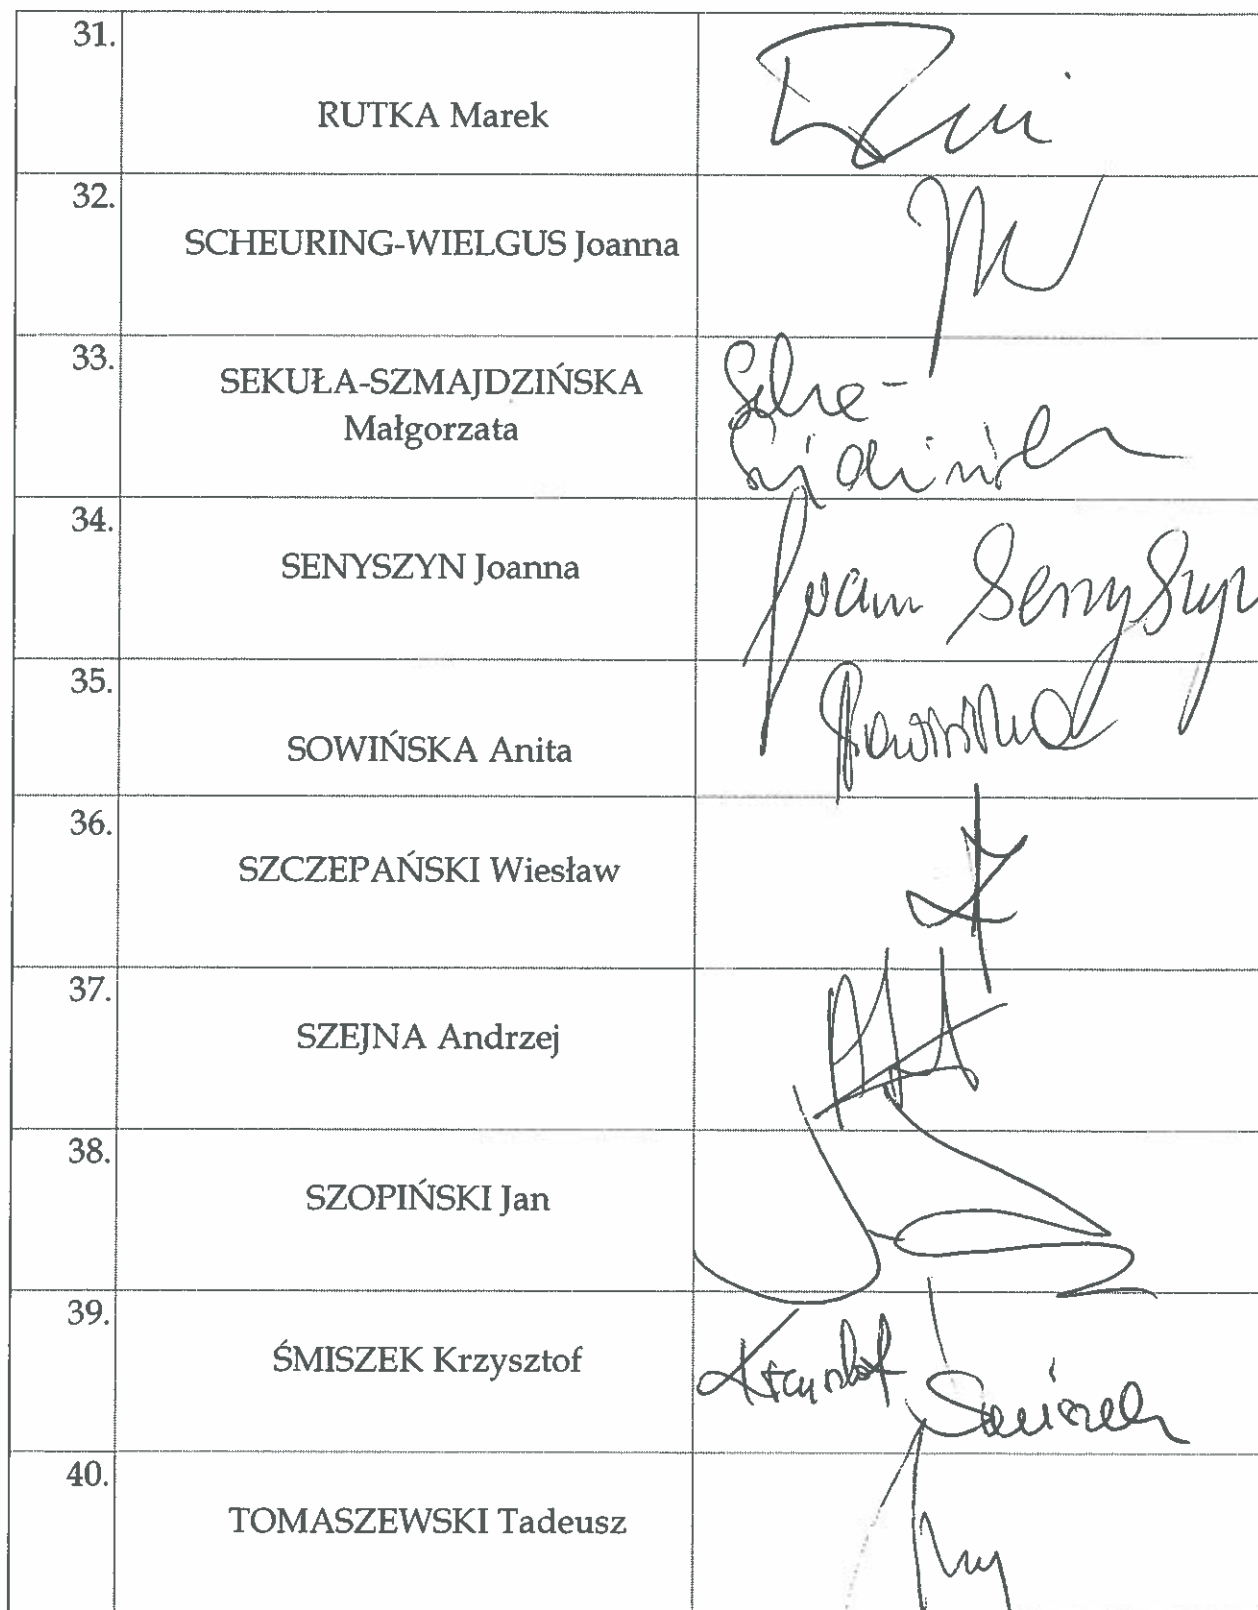 31.
RUTKA Marek
32.
SCHEURING-WIELGUS Joanna
33.
SEKUŁA-SZMAJDZIŃSKA
Małgorzata
34.
SENYSZYN Joanna
Senyszyn
35.
SOWIŃSKA Anita
36.
SZCZEPAŃSKI Wiesław
37.
SZEJNA Andrzej
38.
SZOPIŃSKI Jan
39.
ŚMISZEK Krzysztof
40.
TOMASZEWSKI Tadeusz